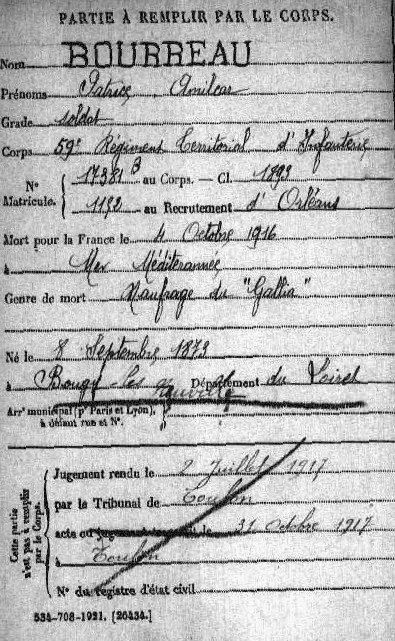 PARTIE À REMPLIR PAR LE CORPS.
Nom BOURREAU
Prénoms Patrice Amilcar
Grade soldat
Corps 59e Régiment Territorial d'Infanterie
N° Matricule. 17381 B au Corps. — Cl. 1899
1192 au Recrutement d'Orléans
Mort pour la France le 4 Octobre 1916
à Mer Méditerannée
Genre de mort Naufrage du "Gallia"
Né le 8 Septembre 1879
à Bougy-les-Neuville Département du Loiret
Arrt municipal (pr Paris et Lyon),
à défaut rue et N°.
Cette partie n'est pas à remplir par le Corps.
Jugement rendu le 2 Juillet 1917
par le Tribunal de Toulon
acte ou jugement transcrit le 31 octobre 1917
à Toulon
N° du registre d'état civil
534-708-1921. [26434.]